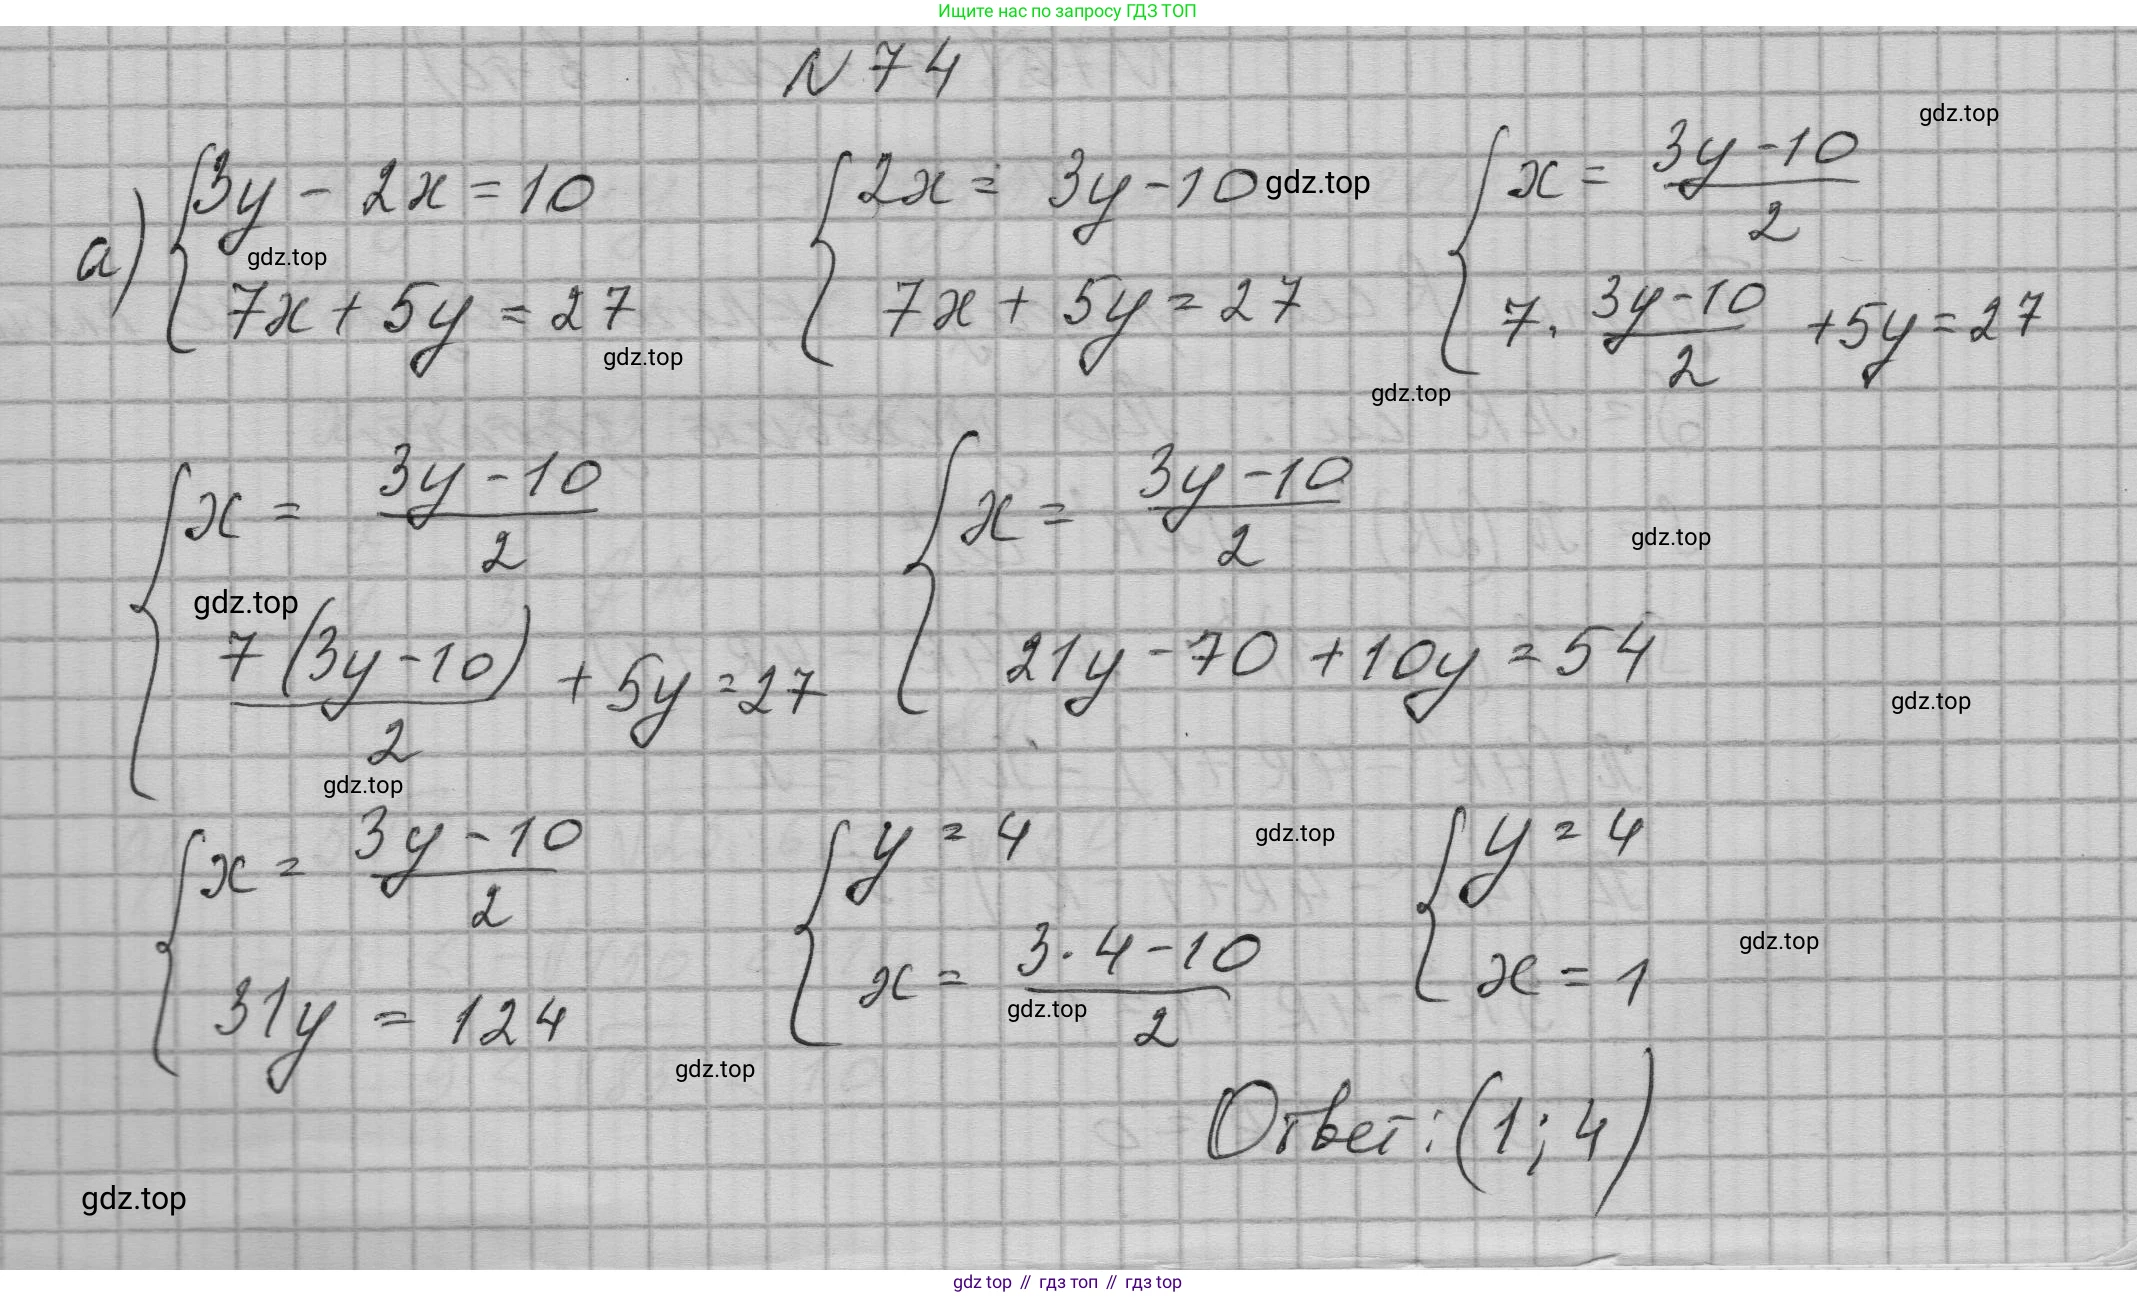 Ищите нас по запросу ГДЗ ТОП
N 74
gdz.top
а) { 3y - 2x = 10
7x + 5y = 27
gdz.top
gdz.top
{ 2x = 3y - 10
7x + 5y = 27
gdz.top
{ x = (3y - 10)/2
7 · (3y - 10)/2 + 5y = 27
gdz.top
{ x = (3y - 10)/2
7(3y - 10)/2 + 5y = 27
gdz.top
gdz.top
{ x = (3y - 10)/2
21y - 70 + 10y = 54
gdz.top
gdz.top
{ x = (3y - 10)/2
31y = 124
gdz.top
{ y = 4
x = (3 · 4 - 10)/2
gdz.top
gdz.top
{ y = 4
x = 1
gdz.top
Ответ: (1; 4)
gdz.top
gdz top // гдз топ // гдз top